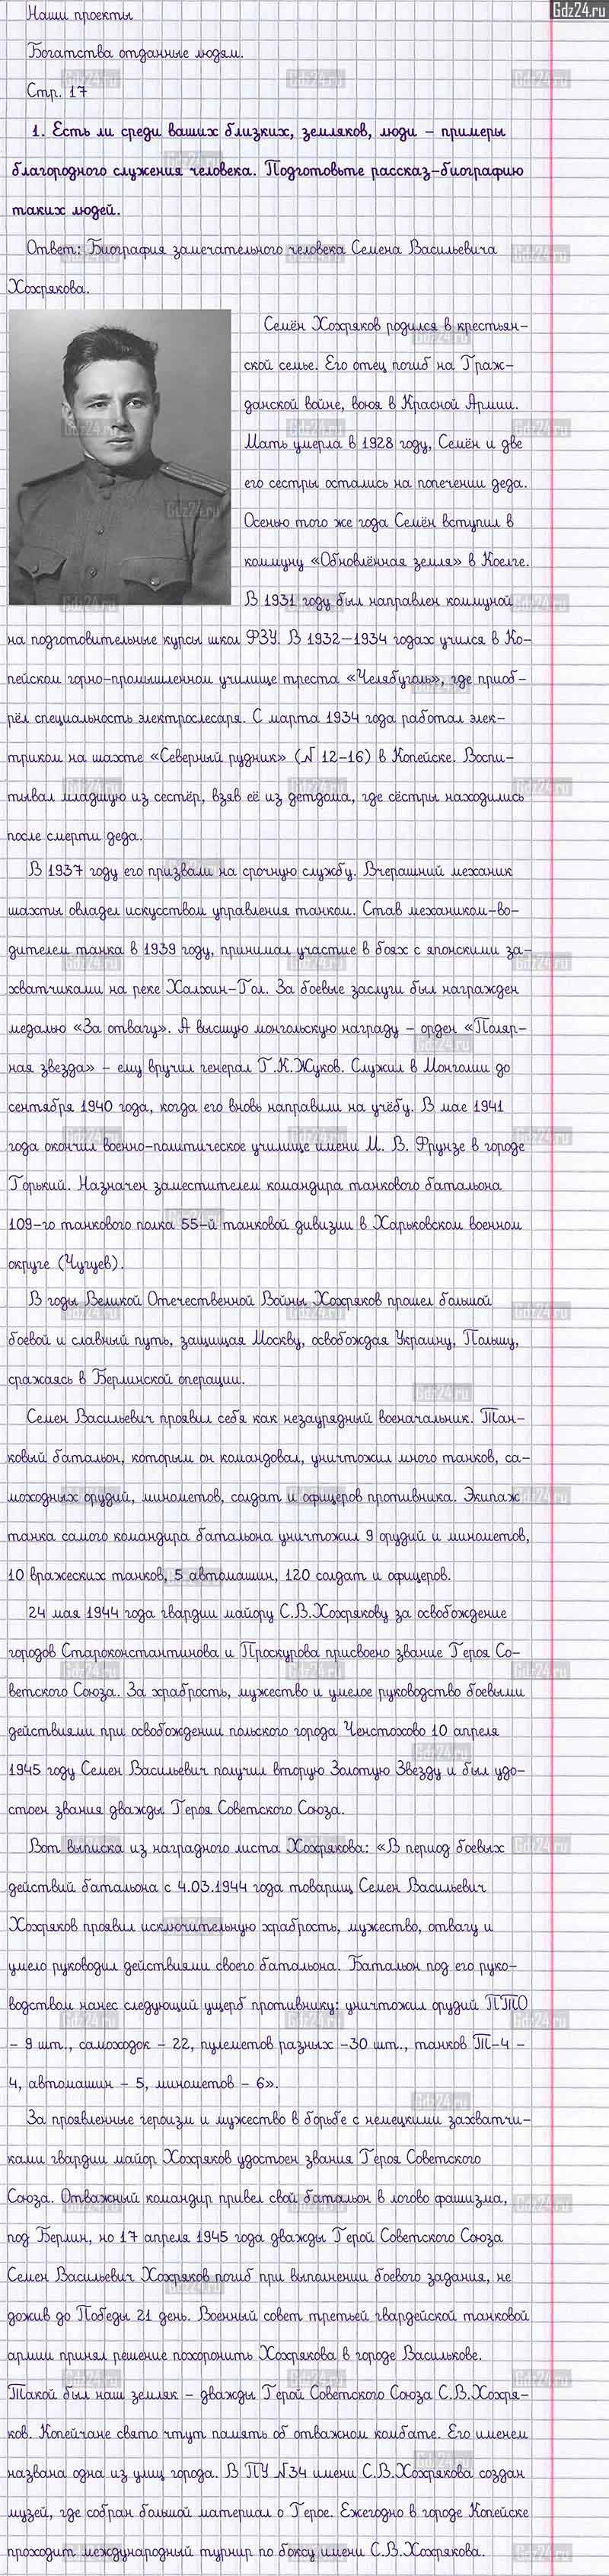 Gdz24.ru
Наши проекты
Богатства отданные людям.
Стр. 17
1. Есть ли среди ваших близких, земляков, люди – примеры
благородного служения человека. Подготовьте рассказ-биографию
таких людей.
Ответ: Биография замечательного человека Семена Васильевича
Хохрякова.
Семён Хохряков родился в крестьян-
ской семье. Его отец погиб на Граж-
данской войне, воюя в Красной Армии.
Мать умерла в 1928 году, Семён и две
его сестры остались на попечении деда.
Осенью того же года Семён вступил в
коммуну «Обновлённая земля» в Коелге.
В 1931 году был направлен коммуной
на подготовительные курсы школ ФЗУ. В 1932–1934 годах учился в Ко-
пейском горно-промышленном училище треста «Челябуголь», где приоб-
рёл специальность электрослесаря. С марта 1934 года работал элек-
триком на шахте «Северный рудник» (№ 12–16) в Копейске. Воспи-
тывал младшую из сестёр, взяв её из детдома, где сёстры находились
после смерти деда.
В 1937 году его призвали на срочную службу. Вчерашний механик
шахты овладел искусством управления танком. Став механиком-во-
дителем танка в 1939 году, принимал участие в боях с японскими за-
хватчиками на реке Халхин-Гол. За боевые заслуги был награжден
медалью «За отвагу». А высшую монгольскую награду – орден «Поляр-
ная звезда» – ему вручил генерал Г.К.Жуков. Служил в Монголии до
сентября 1940 года, когда его вновь направили на учёбу. В мае 1941
года окончил военно-политическое училище имени М. В. Фрунзе в городе
Горький. Назначен заместителем командира танкового батальона
109-го танкового полка 55-й танковой дивизии в Харьковском военном
округе (Чугуев).
В годы Великой Отечественной Войны Хохряков прошел большой
боевой и славный путь, защищая Москву, освобождая Украину, Польшу,
сражаясь в Берлинской операции.
Семен Васильевич проявил себя как незаурядный военачальник. Тан-
ковый батальон, которым он командовал, уничтожил много танков, са-
моходных орудий, минометов, солдат и офицеров противника. Экипаж
танка самого командира батальона уничтожил 9 орудий и минометов,
10 вражеских танков, 5 автомашин, 120 солдат и офицеров.
24 мая 1944 года гвардии майору С.В.Хохрякову за освобождение
городов Староконстантинова и Проскурова присвоено звание Героя Со-
ветского Союза. За храбрость, мужество и умелое руководство боевыми
действиями при освобождении польского города Ченстохово 10 апреля
1945 году Семен Васильевич получил вторую Золотую Звезду и был удо-
стоен звания дважды Героя Советского Союза.
Вот выписка из наградного листа Хохрякова: «В период боевых
действий батальона с 4.03.1944 года товарищ Семен Васильевич
Хохряков проявил исключительную храбрость, мужество, отвагу и
умело руководил действиями своего батальона. Батальон под его руко-
водством нанес следующий ущерб противнику: уничтожил орудий ПТО
– 9 шт., самоходок – 22, пулеметов разных –30 шт., танков Т-4 –
4, автомашин – 5, минометов – 6».
За проявленные героизм и мужество в борьбе с немецкими захватчи-
ками гвардии майор Хохряков удостоен звания Героя Советского
Союза. Отважный командир привел свой батальон в логово фашизма,
под Берлин, но 17 апреля 1945 года дважды Герой Советского Союза
Семен Васильевич Хохряков погиб при выполнении боевого задания, не
дожив до Победы 21 день. Военный совет третьей гвардейской танковой
армии принял решение похоронить Хохрякова в городе Василькове.
Такой был наш земляк – дважды Герой Советского Союза С.В.Хохря-
ков. Копейчане свято чтут память об отважном комбате. Его именем
названа одна из улиц города. В ПУ №34 имени С.В.Хохрякова создан
музей, где собран большой материал о Герое. Ежегодно в городе Копейске
проходит международный турнир по боксу имени С.В.Хохрякова.